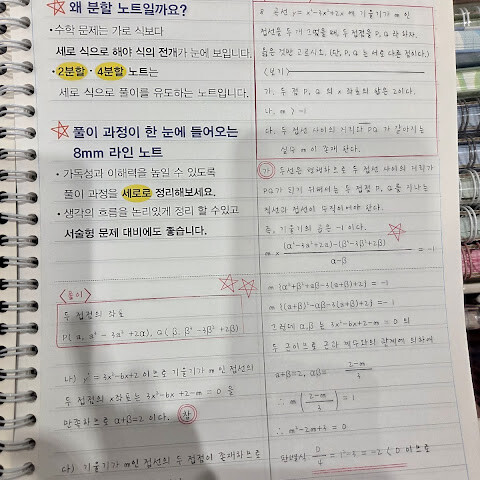 ☆ 왜 분할 노트일까요?
• 수학 문제는 가로 식보다
세로 식으로 해야 식의 전개가 눈에 보입니다.
• 2분할 · 4분할 노트는
세로 식으로 풀이를 유도하는 노트입니다.
☆ 풀이 과정이 한 눈에 들어오는
8mm 라인 노트
• 가독성과 이해력을 높일 수 있도록
풀이 과정을 세로로 정리해보세요.
• 생각의 흐름을 논리있게 정리 할 수있고
서술형 문제 대비에도 좋습니다.
<풀이>
두 접점의 좌표
P(α, α³-3α²+2α), Q(β, β³-3β²+2β)
나) y'=3x²-6x+2 이므로 기울기가 m인 접선의
두 접점의 x좌표는 3x²-6x+2-m=0 을
만족하므로 α+β=2 이다. (참)
다) 기울기가 m인 접선의 두 접점이 존재하므로
8 곡선 y=x³-3x²+2x 에 기울기가 m인
접선을 두 개 그었을 때, 두 접점을 P, Q라 하자.
옳은 것만 고르시오. (단, P, Q는 서로 다른 점이다.)
<보기>
가. 두 점 P, Q의 x 좌표의 합은 2이다.
나. m > -1
다. 두 접선 사이의 거리와 PQ가 같아지는
실수 m이 존재한다.
가 두 선은 평행하므로 두 접선 사이의 거리가
PQ가 되기 위해서는 두 접점 P, Q를 지나는
직선과 접선이 수직이어야 한다.
즉, 기울기의 곱은 -1 이다.
m × (α³-3α²+2α)-(β³-3β²+2β) / α-β = -1
m (α²+β²+αβ-3(α+β)+2) = -1
m {(α+β)²-αβ-3(α+β)+2} = -1
그런데 α,β는 3x²-6x+2-m=0 의
두 근이므로 근과 계수와의 관계에 의하여
α+β=2, αβ= 2-m / 3
∴ m (2-m / 3) = 1
∴ m²-2m+3=0
판별식 D/4 = 1²-3 = -2 < 0 이므로